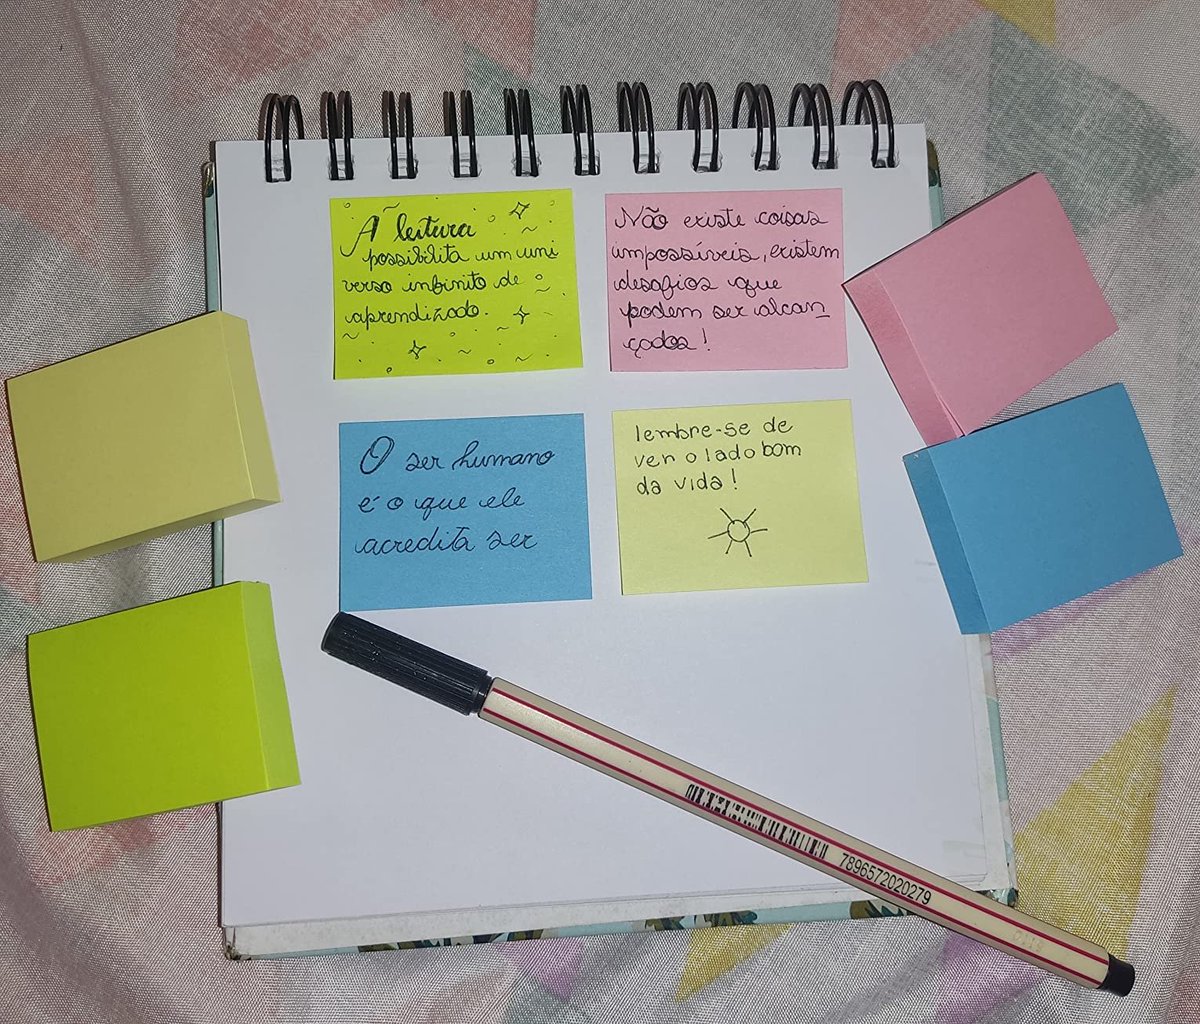 A leitura
possibilita um uni
verso infinito de
aprendizado.
Não existe coisas
impossíveis, existem
desafios que
podem ser alcan
çados!
O ser humano
é o que ele
acredita ser
lembre-se de
ver o lado bom
da vida!
7896572020279